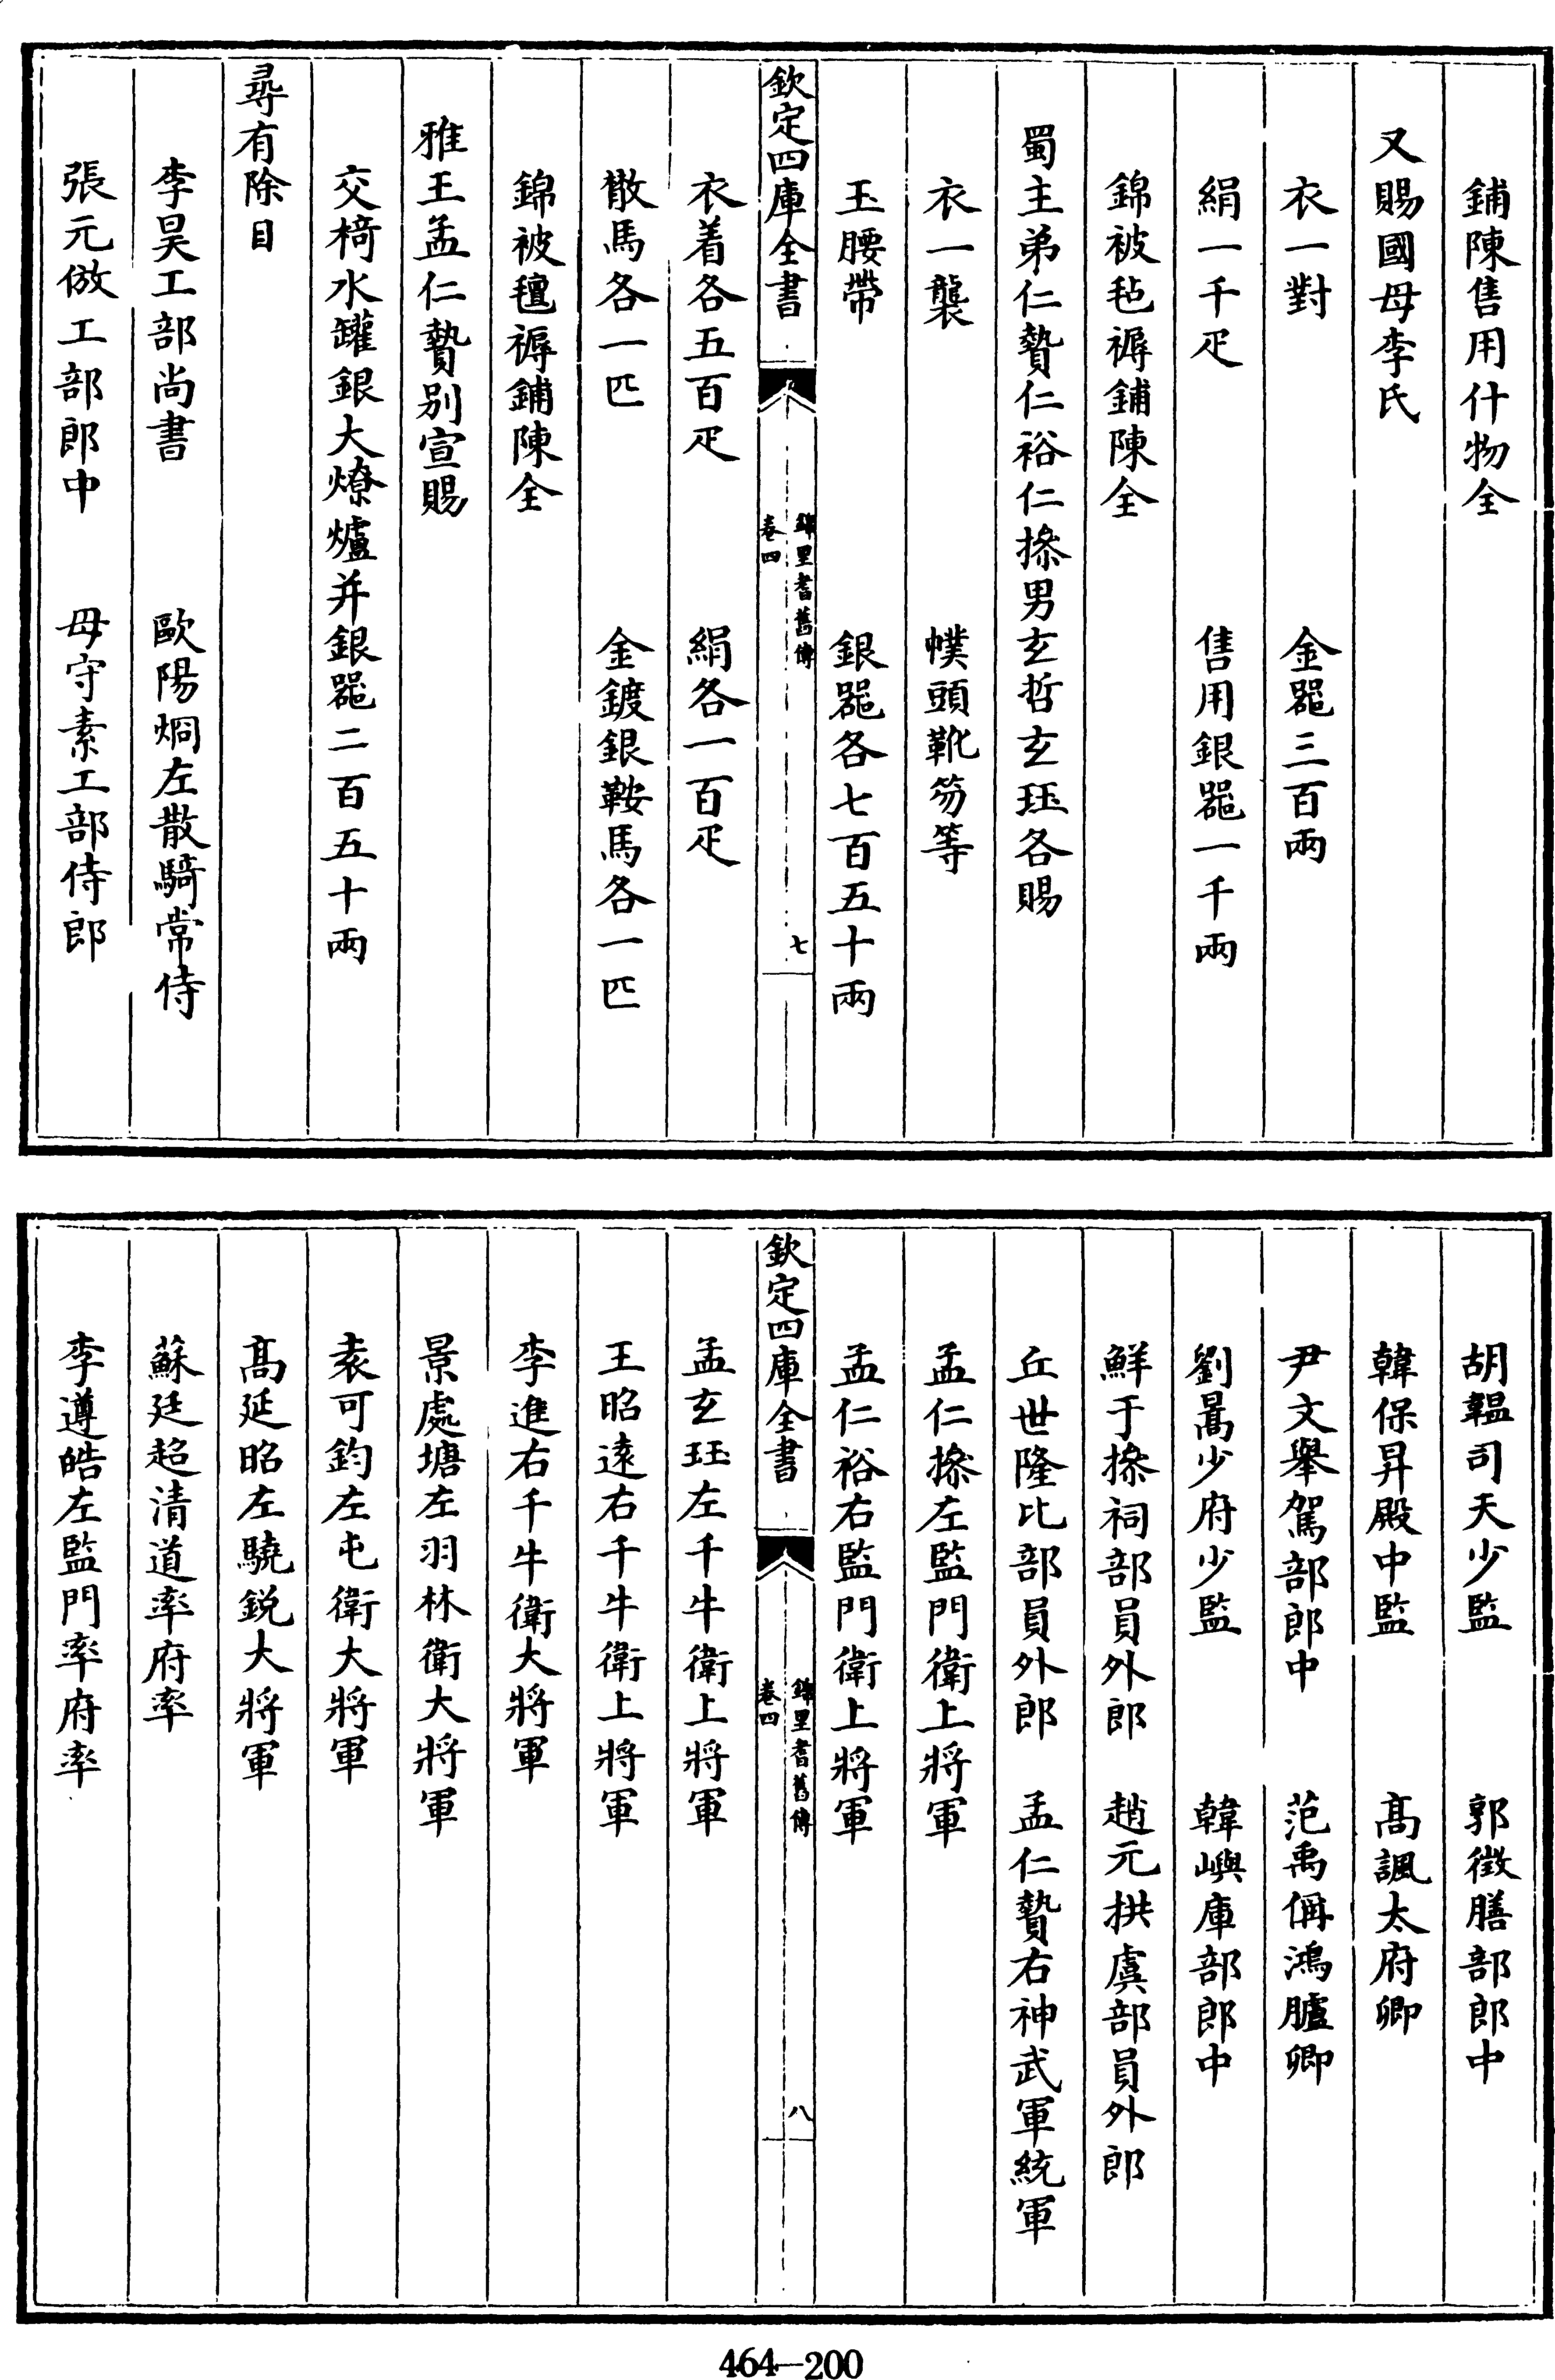 鋪陳售用什物全
又賜國母李氏
衣一對　金器三百兩
絹一千疋　售用銀器一千兩
錦被毡褥鋪陳全
蜀主弟仁贄仁裕仁操男玄哲玄珏各賜
衣一襲　幞頭靴笏等
玉腰帶　銀器各七百五十兩
欽定四庫全書　錦里耆舊傳　卷四　七
衣着各五百疋　絹各一百疋
散馬各一匹　金鍍銀鞍馬各一匹
錦被氊褥鋪陳全
雅王孟仁贄別宣賜
交椅水罐銀大燎爐并銀器二百五十兩
尋有除目
李昊工部尚書　歐陽烱左散騎常侍
張元倣工部郎中　毋守素工部侍郎
胡韞司天少監　郭徵膳部郎中
韓保昇殿中監　高諷太府卿
尹文舉駕部郎中　范禹偁鴻臚卿
劉暠少府少監　韓嶼庫部郎中
鮮于操祠部員外郎　趙元拱虞部員外郎
丘世隆比部員外郎　孟仁贄右神武軍統軍
孟仁操左監門衛上將軍
孟仁裕右監門衛上將軍
欽定四庫全書　錦里耆舊傳　卷四　八
孟玄珏左千牛衛上將軍
王昭遠右千牛衛上將軍
李進右千牛衛大將軍
景處塘左羽林衛大將軍
袁可鈞左屯衛大將軍
高延昭左驍銳大將軍
蘇廷超清道率府率
李遵皓左監門率府率
464—200